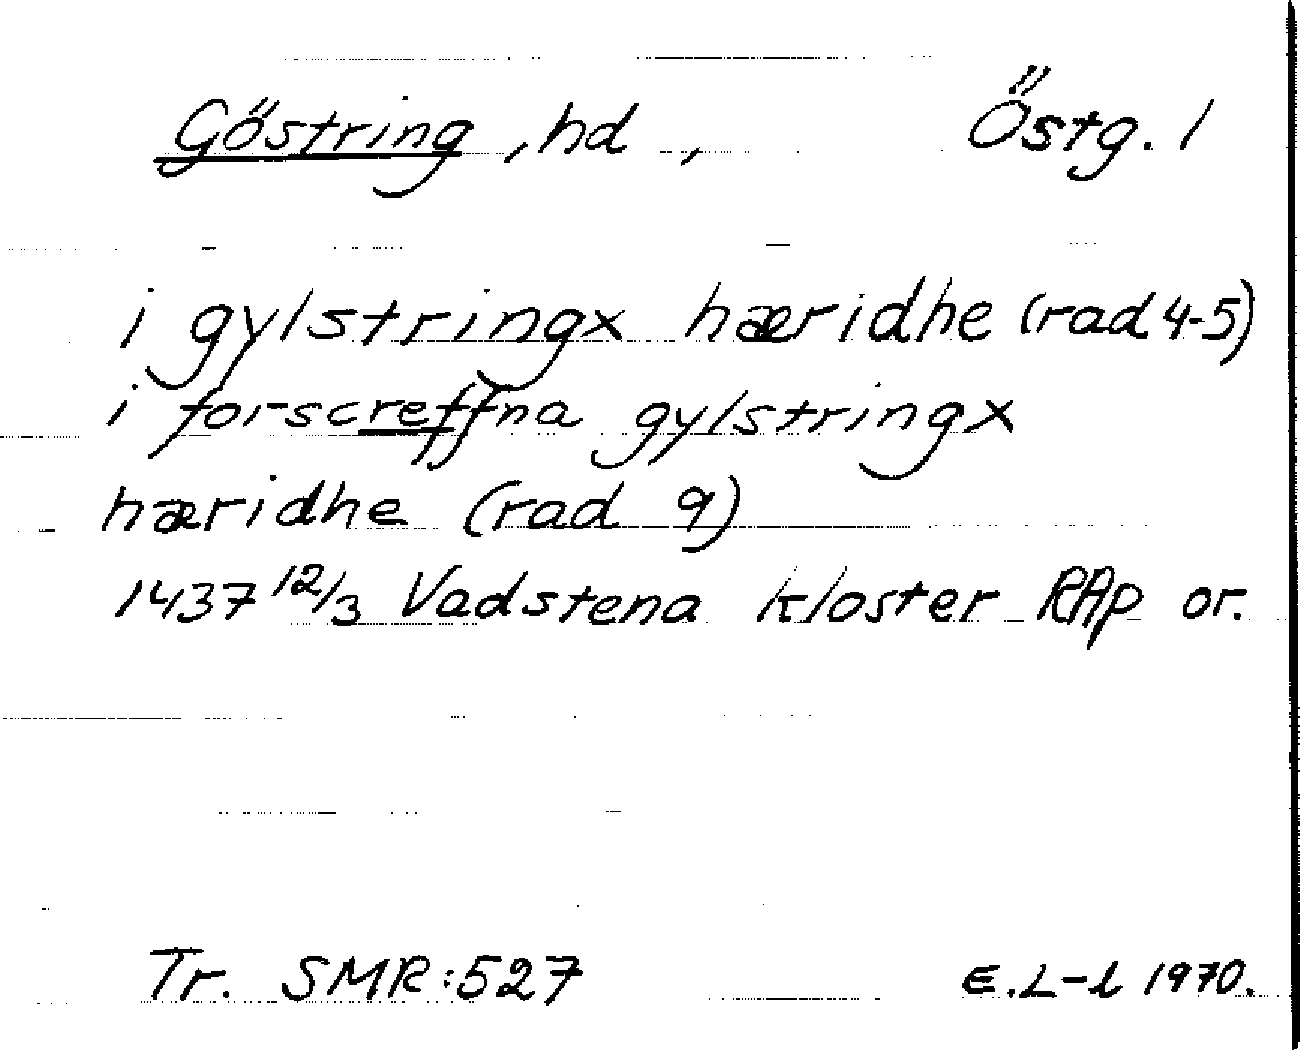 Göstring, hd, Östg. l
i gylstringx hæridhe (rad 4-5)
i forscreffna gylstringx
hæridhe (rad 9)
1437 12/3 Vadstena kloster RAp or.
Tr. SMR:527 E.L-l 1970.